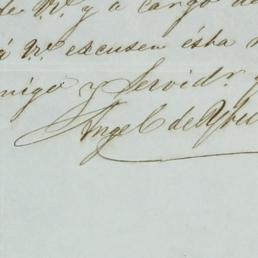 de V. y a cargo de
á V. excusen ésta
migo y Servidr.
Angel de